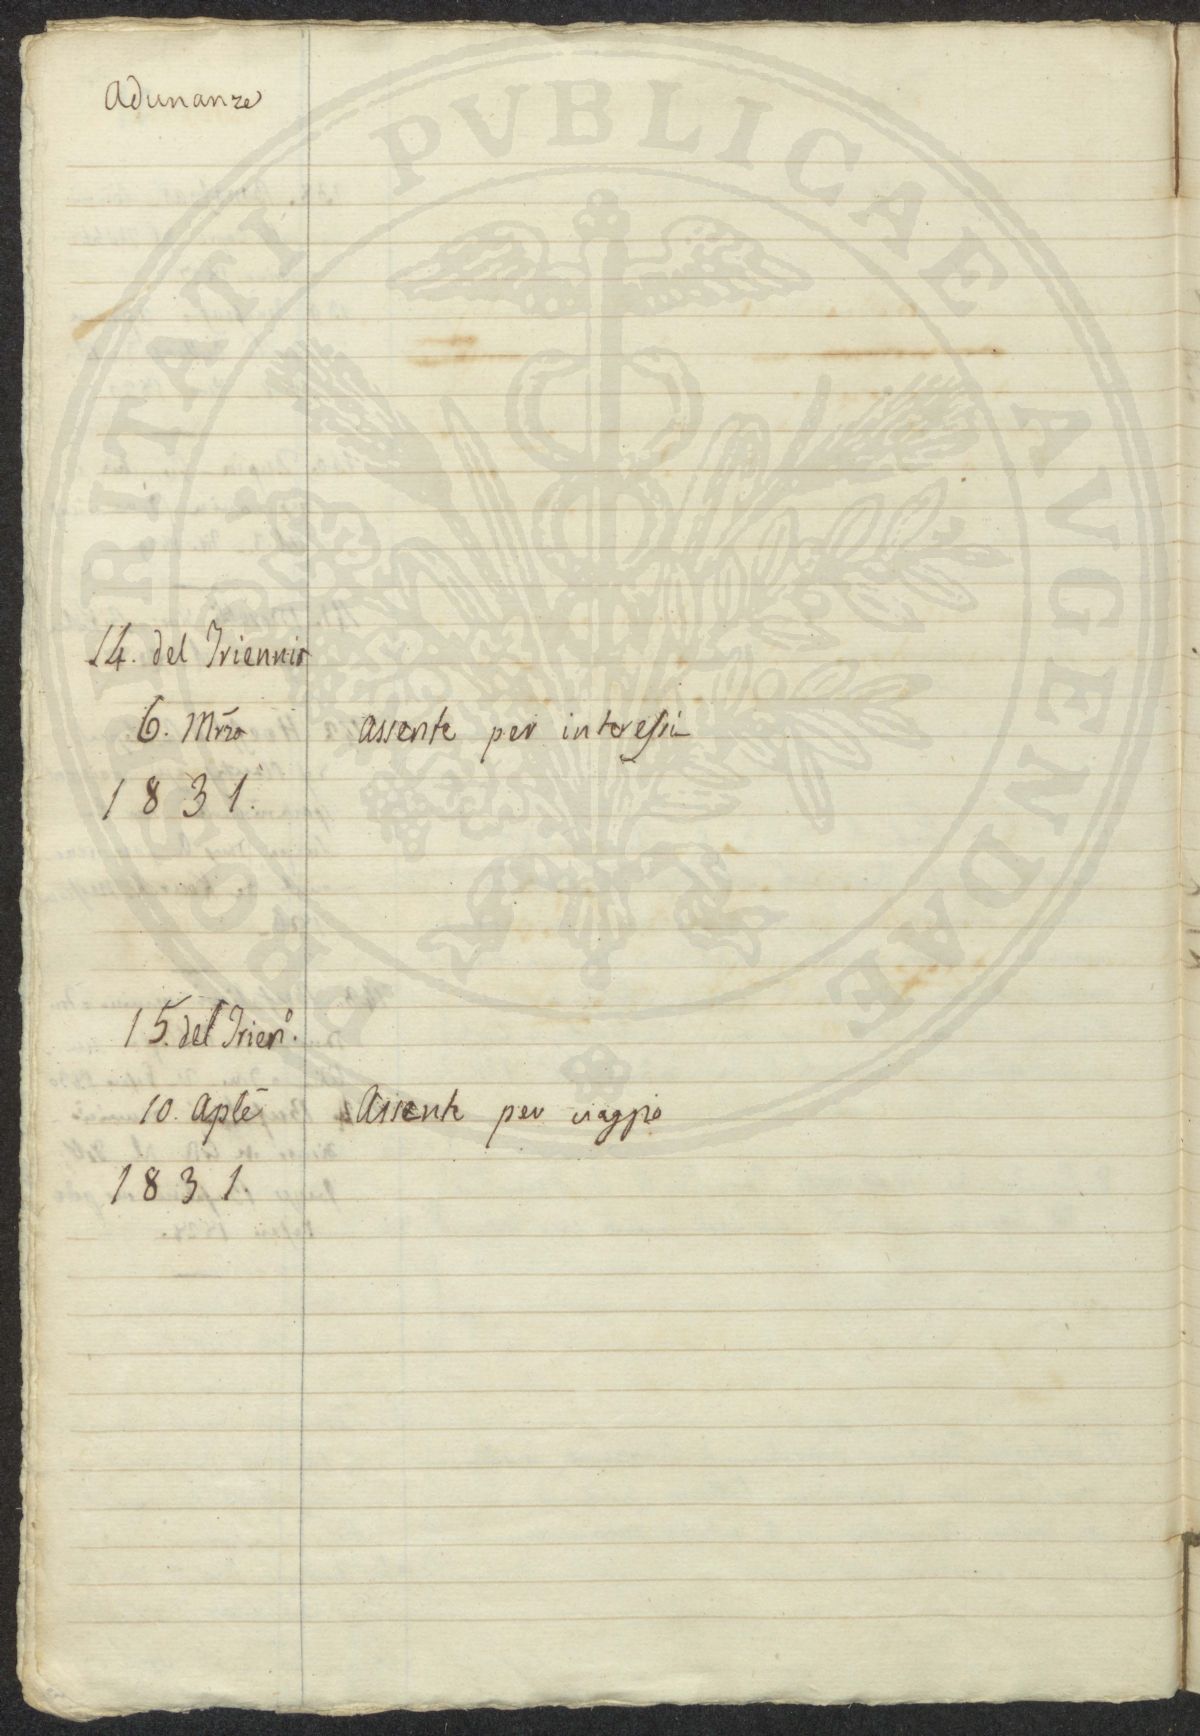 Adunanze
14. del Triennio
6. Mrzo assente per interessi
1831.
15. del Trienº.
10. Aple Assente per viaggio
1831.
PROSPERITATI PVBLICAE AVGENDAE